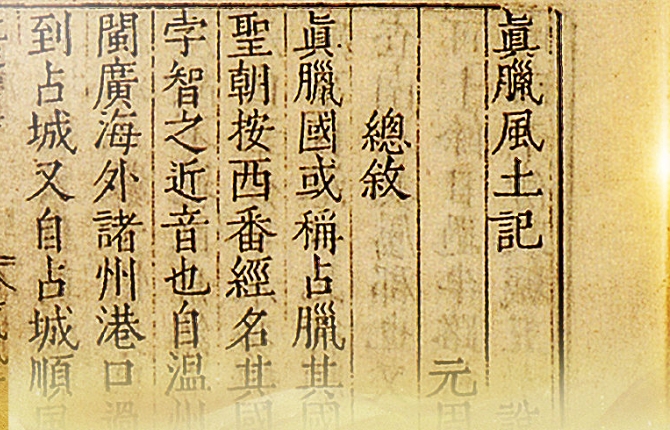 眞臘風土記
元周
總敘
眞臘國或稱占臘其國
聖朝按西番經名其國
孛智之近音也自溫州
閩廣海外諸州港口過
到占城又自占城順風